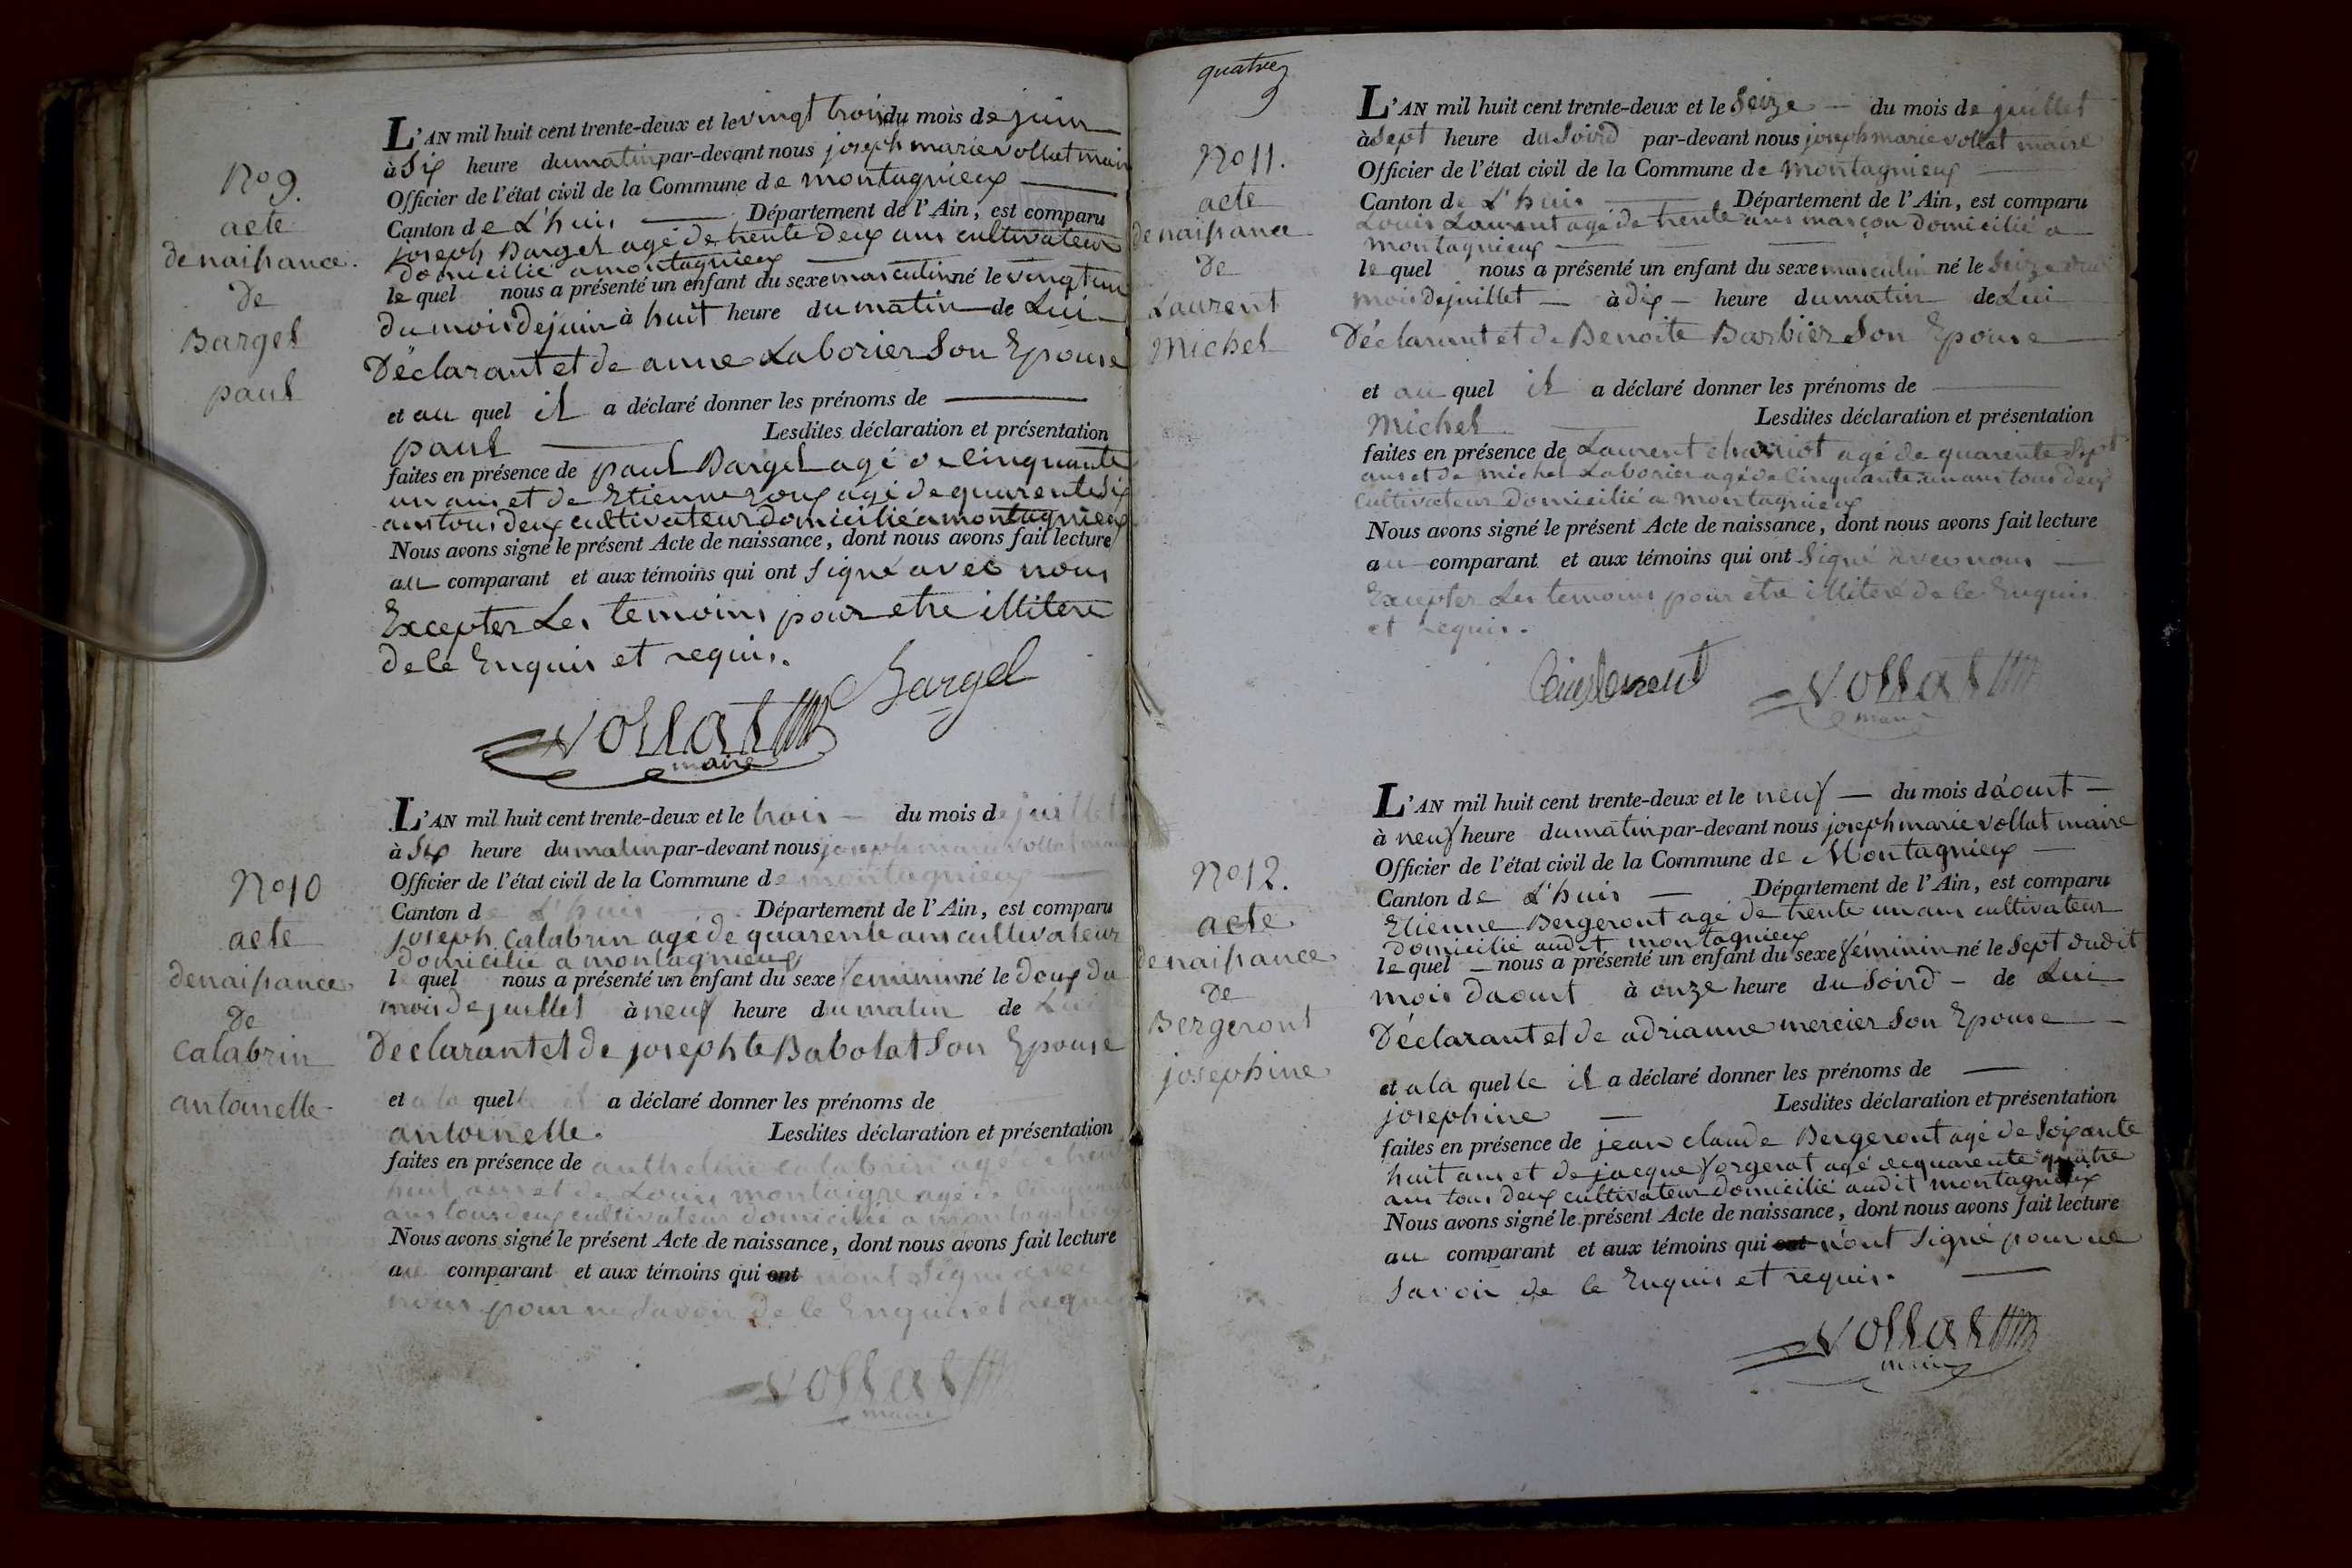 No 9.
acte
de naissance.
De
Bargel
paul
L'AN mil huit cent trente-deux et le vingt trois du mois de juin
à Six heure du matin par-devant nous joseph marie vollat maire
Officier de l'état civil de la Commune de montagnieux
Canton de L'huis Département de l'Ain, est comparu
joseph Bargel agé de trente deux ans cultivateur
domicilié a montagnieux
le quel nous a présenté un enfant du sexe masculin né le vingt un
du mois de juin à huit heure du matin de Lui
Déclarant et de anne Laborier Son Epouse
et au quel il a déclaré donner les prénoms de
paul Lesdites déclaration et présentation
faites en présence de paul Bargel agé de Cinquante
un ans et de Etienne roux agé de quarente Six
ans tous deux cultivateur domicilié a montagnieux
Nous avons signé le présent Acte de naissance, dont nous avons fait lecture
au comparant et aux témoins qui ont Signé avec nous
Excepter Les temoins pour etre illitere
de le Enquis et requis.
Bargel
Vollat
maire
No 10
acte
de naissance
De
Calabrin
antoinette
L'AN mil huit cent trente-deux et le trois du mois de juillet
à Six heure du matin par-devant nous joseph marie vollat maire
Officier de l'état civil de la Commune de montagnieux
Canton de L'huis Département de l'Ain, est comparu
joseph Calabrin agé de quarente ans cultivateur
domicilié a montagnieux
l quel nous a présenté un enfant du sexe feminin né le deux du
mois de juillet à neuf heure du matin de Lui
Declarant et de josephte Babolat Son Epouse
et a la quelle il a déclaré donner les prénoms de
antoinette. Lesdites déclaration et présentation
faites en présence de anthelme calabrin agé de trente
huit ans et de Louis montaigre agé de Cinquante
ans tous deux cultivateur domicilié a montagnieux
Nous avons signé le présent Acte de naissance, dont nous avons fait lecture
au comparant et aux témoins qui ont n'ont Signé avec
nous pour ne Savoir de le Enquis et requis
Vollat
maire
quatre
No 11.
acte
de naissance
De
Laurent
Michel
L'AN mil huit cent trente-deux et le Seize du mois de juillet
à Sept heure du Soird par-devant nous joseph marie vollat maire
Officier de l'état civil de la Commune de Montagnieux
Canton de L'huis Département de l'Ain, est comparu
Louis Laurent agé de trente ans masçon domicilié a
montagnieux
le quel nous a présenté un enfant du sexe masculin né le Seize dud
mois de juillet à dix heure du matin de Lui
Déclarant et de Benoite Barbier Son Epouse
et au quel il a déclaré donner les prénoms de
Michel Lesdites déclaration et présentation
faites en présence de Laurent chariot agé de quarente Sept
ans et de michel Laborier agé de Cinquante un ans tous deux
Cultivateur domicilié a montagnieux
Nous avons signé le présent Acte de naissance, dont nous avons fait lecture
au comparant et aux témoins qui ont Signé avec nous
Excepter Les temoins pour etre illiteré de le Enquis
et requis.
Vollat
maire
No 12.
acte
de naissance
De
Bergeront
josephine
L'AN mil huit cent trente-deux et le neuf du mois d'aout
à neuf heure du matin par-devant nous joseph marie vollat maire
Officier de l'état civil de la Commune de Montagnieux
Canton de L'huis Département de l'Ain, est comparu
Etienne Bergeront agé de trente un ans cultivateur
domicilié audit montagnieux
le quel nous a présenté un enfant du sexe féminin né le Sept dudit
mois d'aout à onze heure du Soird de Lui
Déclarant et de adrianne mercier Son Epouse
et a la quelle il a déclaré donner les prénoms de
josephine Lesdites déclaration et présentation
faites en présence de jean claude Bergeront agé de Soixante
huit ans et de jacque forgerat agé de quarente quatre
ans tous deux cultivateur domicilié audit montagnieux
Nous avons signé le présent Acte de naissance, dont nous avons fait lecture
au comparant et aux témoins qui ont n'ont Signé pour ne
Savoir de le Enquis et requis.
Vollat
maire